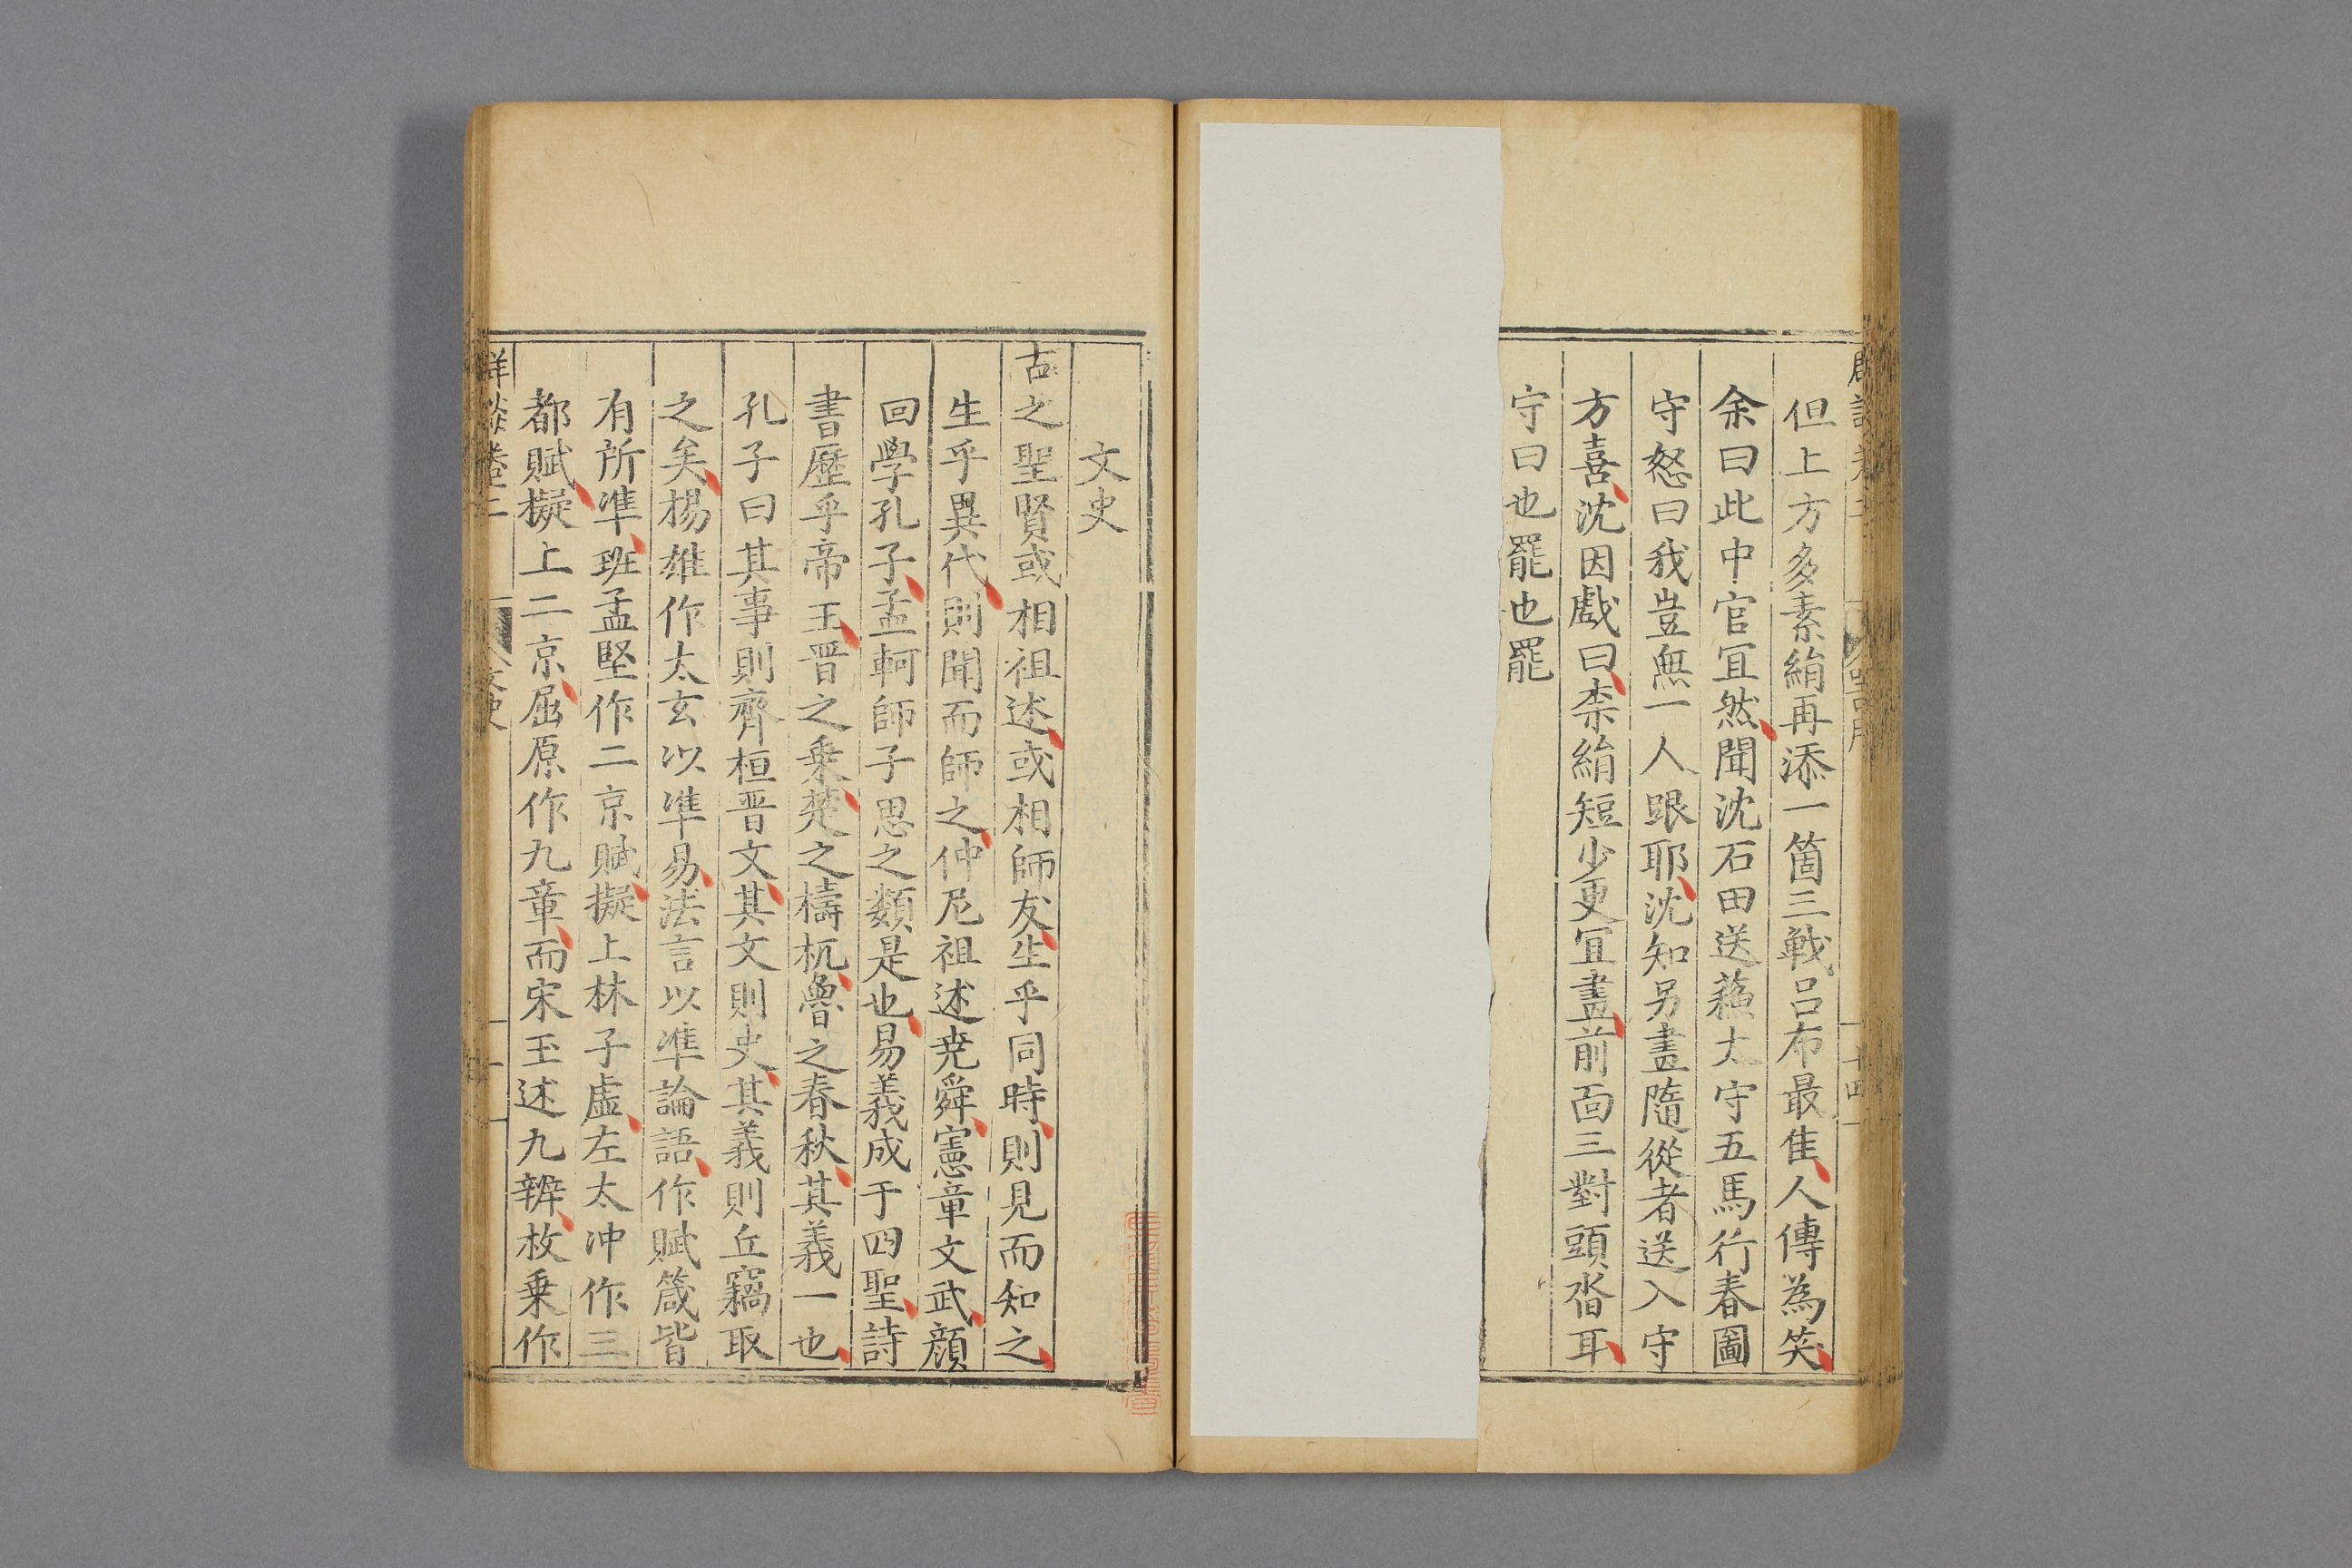 但上方多素絹再添一箇三戦呂布最隹人傳為笑
余曰此中官冝然聞沈石田送蘓太守五馬行春圖
守怒曰我豈無一人跟耶沈知另畫隨從者送入守
方喜沈因戯曰柰絹短少更冝畫前面三對頭沓耳
守曰也罷也罷
文史
古之聖賢或相祖述或相師友生乎同時則見而知之
生乎異代則聞而師之仲尼祖述尭舜憲章文武顔
回學孔子孟軻師子思之類是也易義成于四聖詩
書歷乎帝王晋之乗楚之檮杌魯之春秋其義一也
孔子曰其事則齊桓晋文其文則史其義則丘竊取
之矣楊雄作太玄以準易法言以準論語作賦箴皆
有所準班孟堅作二京賦擬上林子虛左太冲作三
都賦擬上二京屈原作九章而宋玉述九辨枚乗作